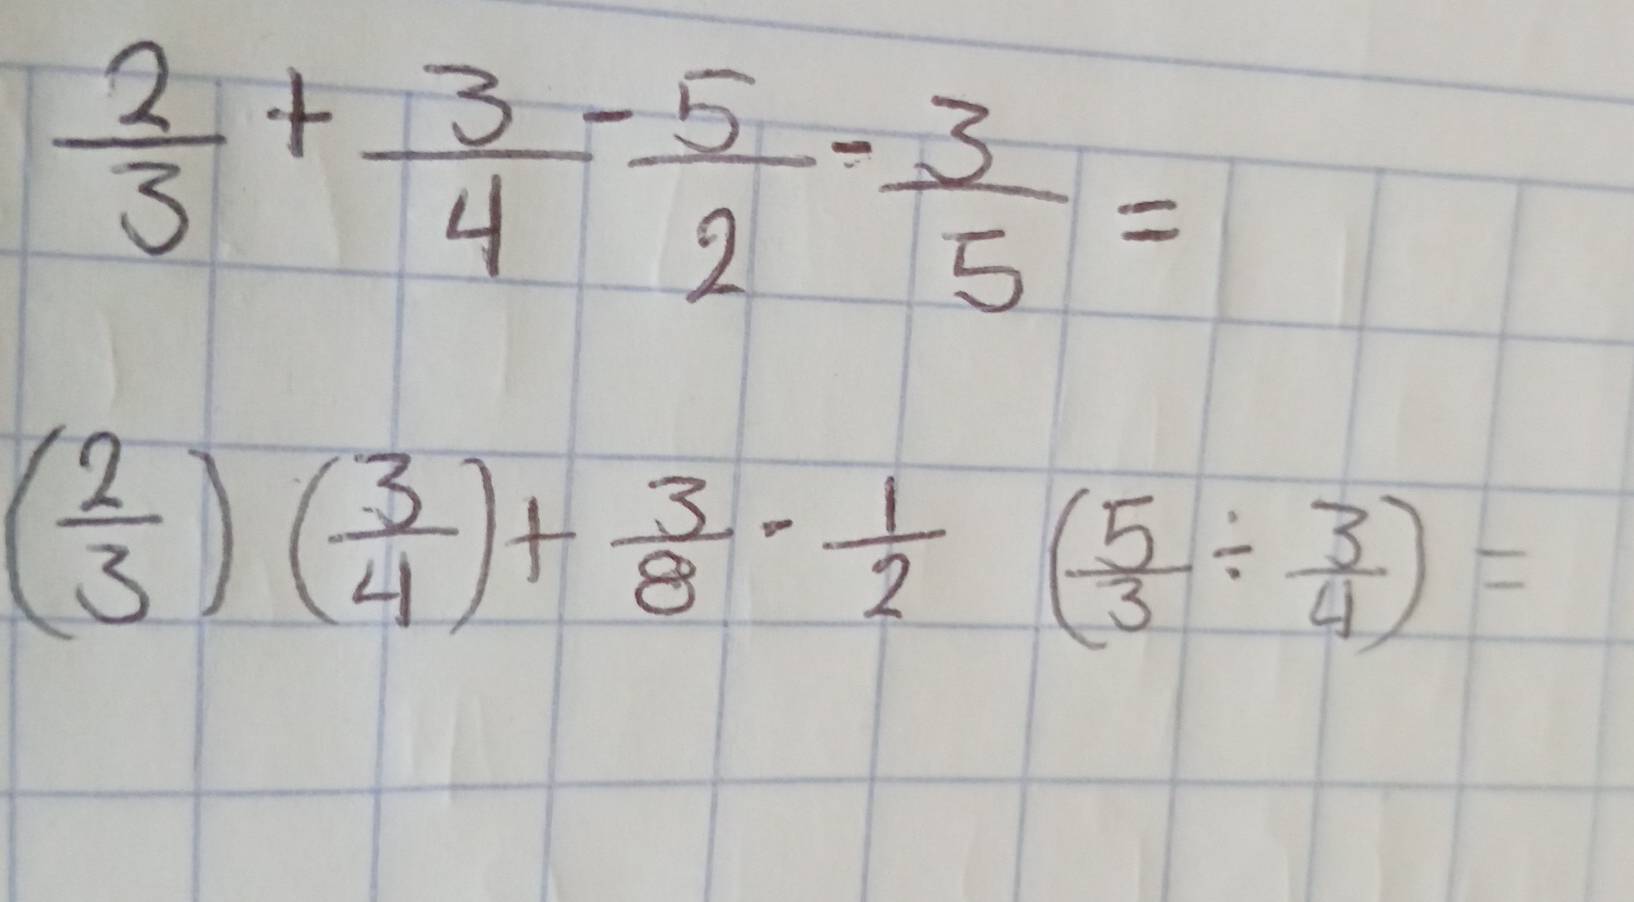 2/3 + 3/4 - 5/2 - 3/5 =
(2/3) (3/4) + 3/8 - 1/2 (5/3 ÷ 3/4) =